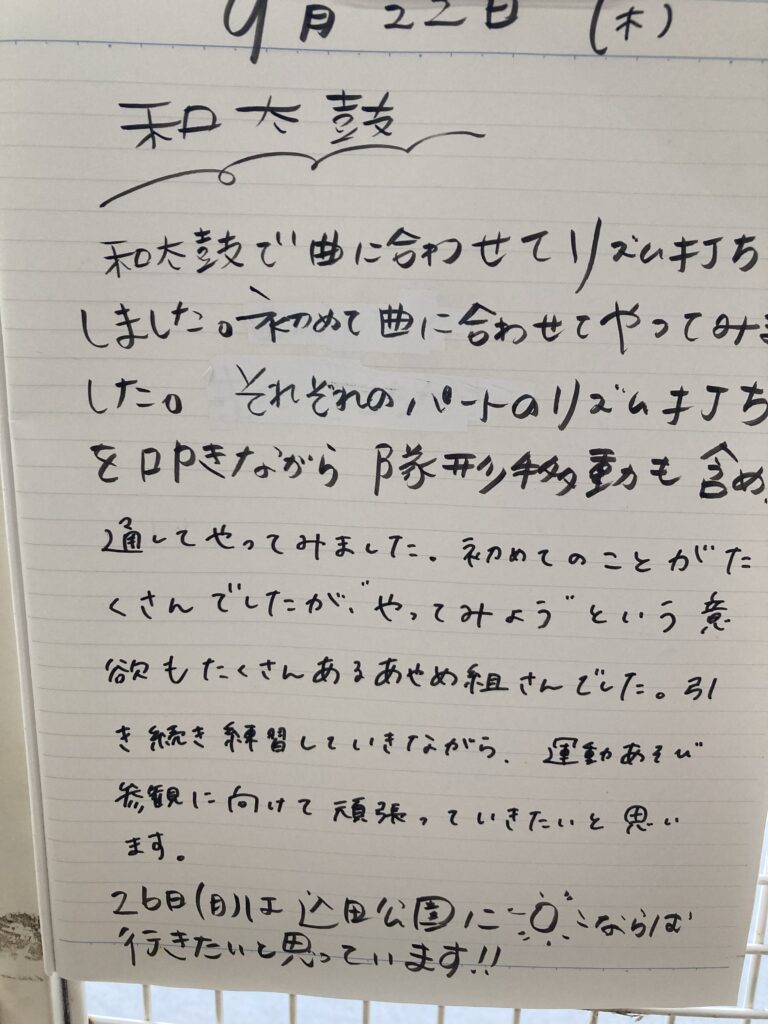 9月22日(木)
和太鼓
和太鼓で曲に合わせてリズム打ち
しました。初めて曲に合わせてやってみま
した。それぞれのパートのリズム打ち
を叩きながら隊形移動も含め
通してやってみました。初めてのことがた
くさんでしたが、"やってみよう"という意
欲もたくさんあるあやめ組さんでした。引
き続き練習していきながら、運動あそび
参観に向けて頑張っていきたいと思い
ます。
26日(月)は公園にならば
行きたいと思っています!!